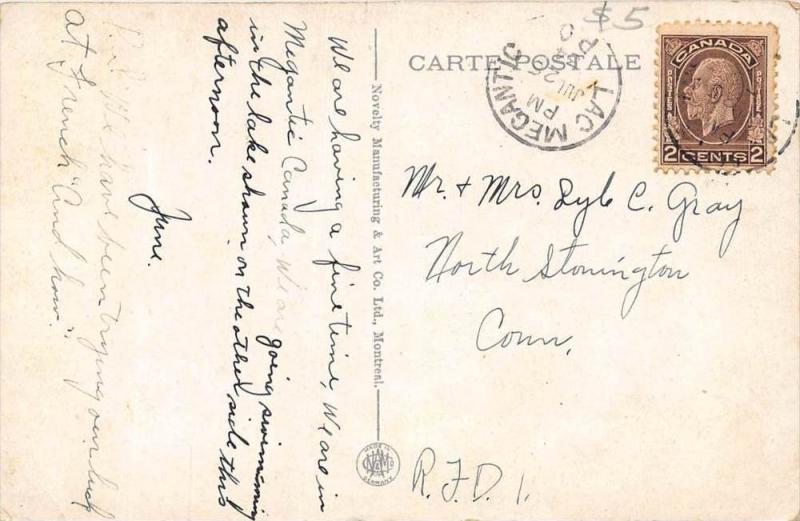 We are having a fine time, We are in
Megantic Canada, We are going swimming
in the lake shown on the other side this
afternoon.
June.
P.S. We have been trying our luck
at French "And how".
Novelty Manufacturing & Art Co. Ltd., Montreal.
MADE IN
GERMANY
$5
CARTE POSTALE
LAC MEGANTIC
PM
JUL 25
P Q
CANADA
POSTES
POSTAGE
2 CENTS 2
Mr. + Mrs. Lyle C. Gray
North Stonington
Conn.
R.F.D. 1.